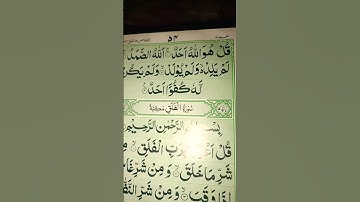 ٥٤
قُلْ هُوَ اللّٰهُ اَحَدٌ ۚ اَللّٰهُ الصَّمَدُ
لَمْ يَلِدْ ۙ وَلَمْ يُوْلَدْ ۙ وَلَمْ يَكُنْ
لَّهٗ كُفُوًا اَحَدٌ
سُوْرَةُ الْفَلَقِ مَكِّيَّةٌ
بِسْمِ اللّٰهِ الرَّحْمٰنِ الرَّحِيْمِ
قُلْ اَعُوْذُ بِرَبِّ الْفَلَقِ ۙ
شَرِّ مَا خَلَقَ ۙ وَمِنْ شَرِّ غَا
اِذَا وَقَبَ ۙ وَمِنْ شَرِّ النَّفّٰ